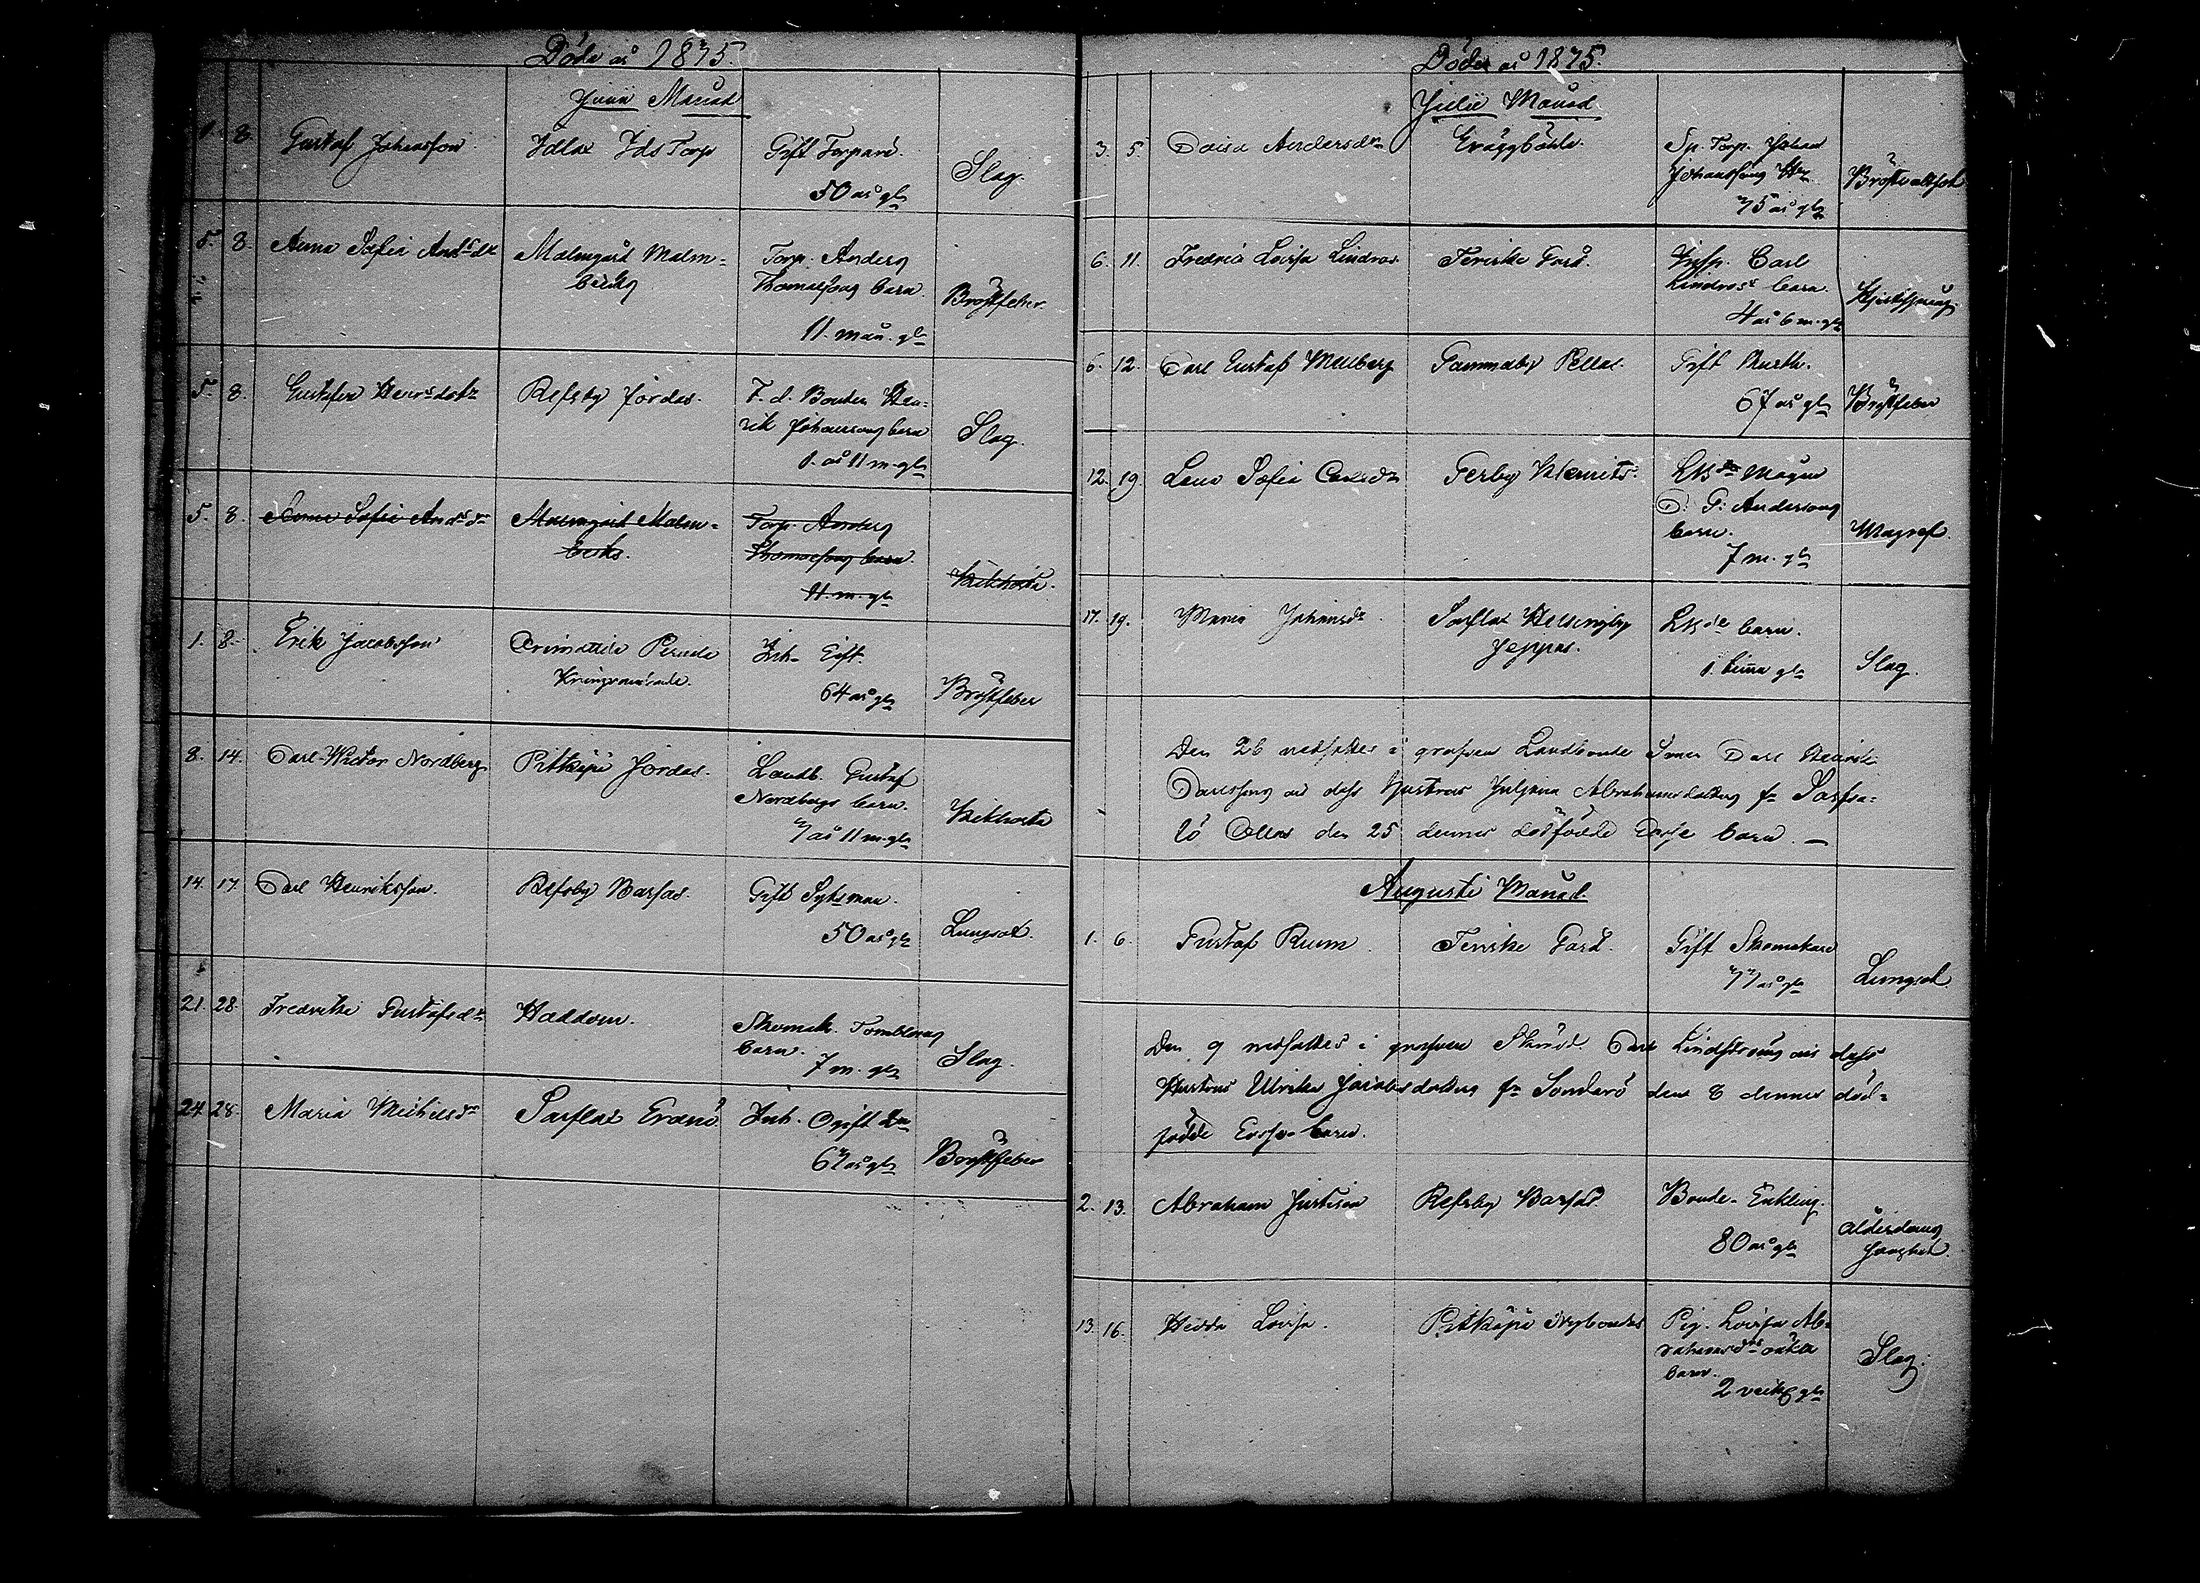 Döde år 1875.
Junii Månad
1. 8. Gustaf Johansson Idlax Ids Torp Gift Torpare.
50 år gl Slag.
5. 8. Anna Sofia Andsdr Malmgård Malm-
backs Torp. Anders
Thomassons barn
11. mån. gl Bröstfeber
5. 8. Gustafva Henrsdotr Refsby Jordas. F.d. Bonden Hen-
rik Johanssons barn
1. år 11 m. gl Slag.
5. 8. Anna Sofia Andsdr Malmgård Malm-
backs. Torp. Anders
Thomassons barn.
11. m. gl Kikhosta.
1. 8. Erik Jacobsson Inh. Gift.
64 år gl Bröstfeber
8. 14. Carl Victor Nordberg Pitkäpä Jordas. Landb. Gustaf
Nordbergs barn.
7 år 11 m. gl Kikhosta
14. 17. Carl Henriksson. Refsby Barsas. Gift Sytsman.
50 år gl Lungsot.
21. 28. Fredrika Gustafsdr Haddom. Skomak.
barn.
7 m. gl Slag.
24. 28. Maria Michelsdr Sarflax Inh. Ogift
67 år gl Bröstfeber
Döde år 1875.
Julii Månad.
3. 5. Caisa Andersdr Gräggböhle. Sp. Torp. Johan
Johanssons
75 år gl
6. 11. Fredrica Lovisa Lindros Terviske Gård. Insp. Carl
Lindros barn.
4 år 6 m. gl
6. 12. Carl Gustaf Mellberg Gammelby Pellas. Gift
67 år gl Bröstfeber
12. 19. Lena Sofia Carlsdr Gerby Klemets.
C: G: Anderssons
barn.
7 m. gl Magref.
17. 19. Maria Johansdr Sarflax Helsingby
Jeppas. barn.
1. timma gl Slag.
Den 26 nedsattes i grafven Landbonde Sonen Carl Henrik
Carlssons och dess hustrus Juljana Abrahamsdotters fr Sarfsa-
lö Ollas den 25 dennes dödfödde barn. —
Augusti Månad.
1. 6. Gustaf Rum Terviske Gård. Gift Skomakare
77 år gl Lungsot.
Den 9 nedsattes i grafven Carl Lindströms och dess
Hustrus Ulrika Jacobsdotters fr Sondarö den 8 dennes död-
födde barn.
2. 13. Abraham Justison Refsby Barsas. Bonde-Enkling.
80 år gl Ålderdoms
svaghet.
13. 16. Hedda Lovisa. Pitkäpä Nybondas Pig. Lovisa Ab-
rahamsdrs oäkta
barn.
2 veck gl Slag.